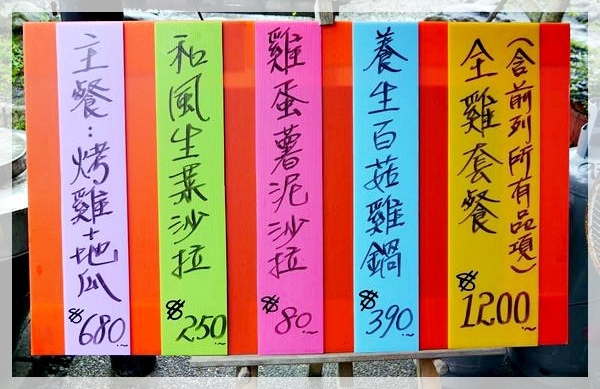 (含前列所有品項)
全雞套餐
$1200.~
養生百菇雞鍋
$390.~
雞蛋薯泥沙拉
$80.~
和風生菜沙拉
$250.~
主餐:烤雞+地瓜
$680.~